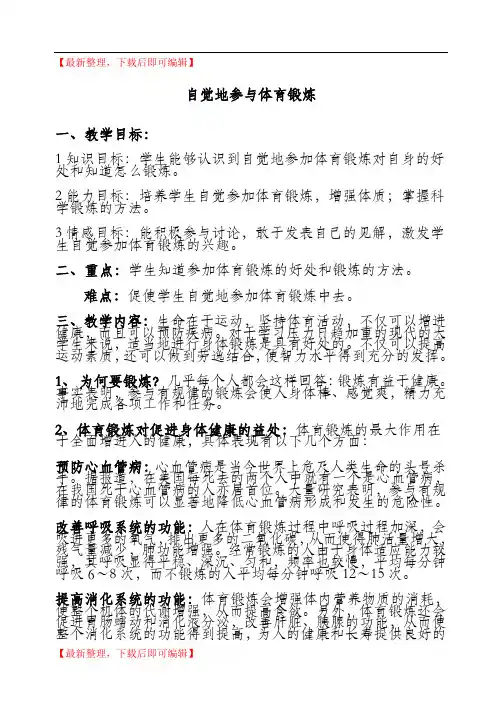 【最新整理，下载后即可编辑】
自觉地参与体育锻炼
一、教学目标：
1 知识目标：学生能够认识到自觉地参加体育锻炼对自身的好
处和知道怎么锻炼。
2 能力目标：培养学生自觉参加体育锻炼，增强体质；掌握科
学锻炼的方法。
3 情感目标：能积极参与讨论，敢于发表自己的见解，激发学
生自觉参加体育锻炼的兴趣。
二、重点：学生知道参加体育锻炼的好处和锻炼的方法。
难点：促使学生自觉地参加体育锻炼中去。
三、教学内容：生命在于运动，坚持体育活动，不仅可以增进
健康，而且可以预防疾病。对于学习压力日趋加重的现代的大
学生来说，适当地进行身体锻炼是具有好处的。不仅可以提高
运动素质，还可以做到劳逸结合，使智力水平得到充分的发挥。
1、为何要锻炼？几乎每个人都会这样回答：锻炼有益于健康。
事实表明，参与有规律的锻炼会使人身体棒、感觉爽，精力充
沛地完成各项工作和任务。
2、体育锻炼对促进身体健康的益处：体育锻炼的最大作用在
于全面增进人的健康，具体表现有以下几个方面：
预防心血管病：心血管病是当今世界上危及人类生命的头号杀
手。据报道，在美国每死去的两个人中就有一个是心血管病，
在我国死于心血管病的人亦居首位。大量研究表明，参与有规
律的体育锻炼可以显著地降低心血管病形成和发生的危险性。
改善呼吸系统的功能：人在体育锻炼过程中呼吸过程加深，会
吸进更多的氧气，排出更多的二氧化碳，从而使得肺活量增大，
残气量减少，肺功能增强。经常锻炼的人由于身体适应能力较
强，其呼吸显得平稳、深沉、匀和，频率也较慢，平均每分钟
呼吸 6～8 次，而不锻炼的人平均每分钟呼吸 12～15 次。
提高消化系统的功能：体育锻炼会增强体内营养物质的消耗，
使整个机体的代谢增强，从而提高食欲。另外，体育锻炼还会
促进胃肠蠕动和消化液分泌，改善肝脏、胰腺的功能，从而使
整个消化系统的功能得到提高，为人的健康和长寿提供良好的
【最新整理，下载后即可编辑】